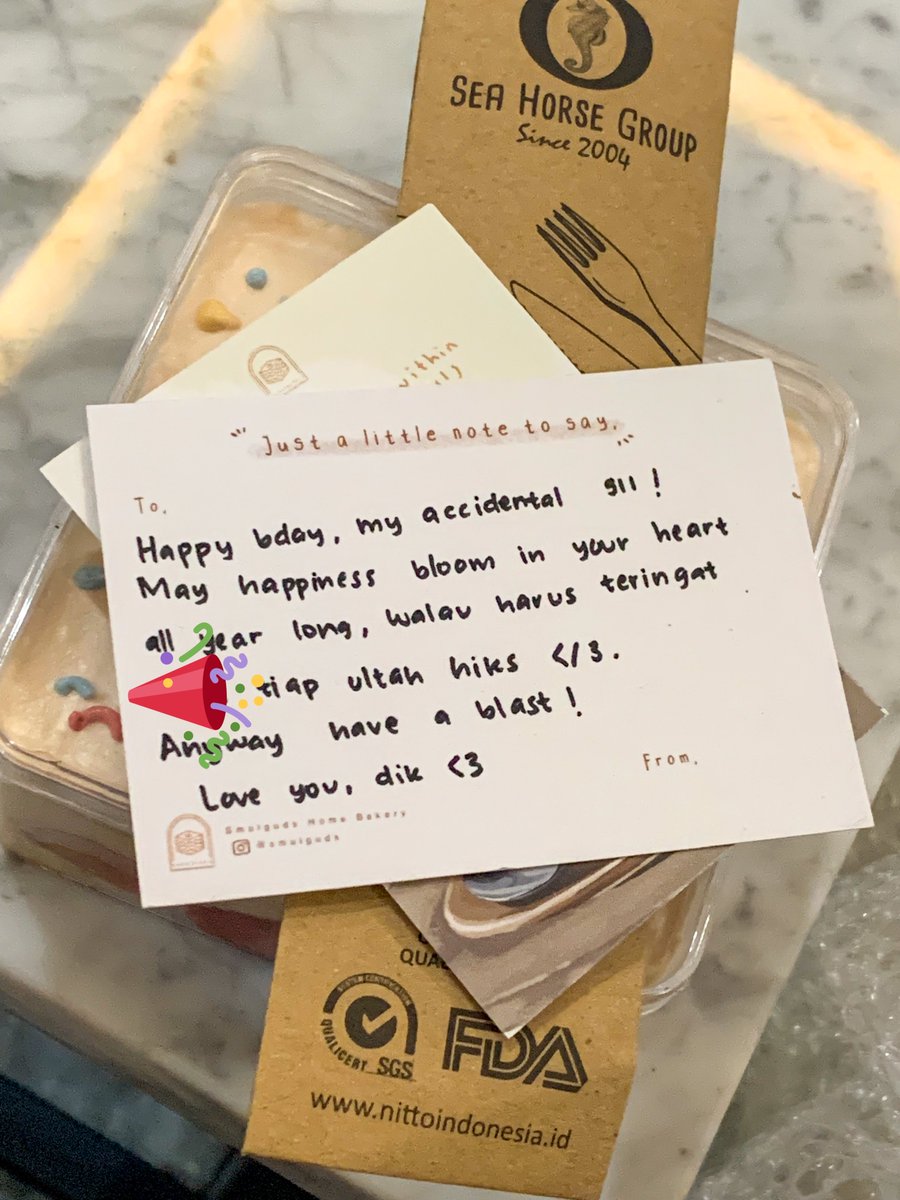 SEA HORSE GROUP
Since 2004
within
Just a little note to say,
To,
Happy bday, my accidental gll!
May happiness bloom in your heart
all year long, walau harus teringat
tiap ultah hiks </3.
Anyway have a blast!
Love you, dik <3
From,
Smolguds Home Bakery
@smolguds
SYSTEM CERTIFICATION
QUALICERT SGS
FDA
www.nittoindonesia.id